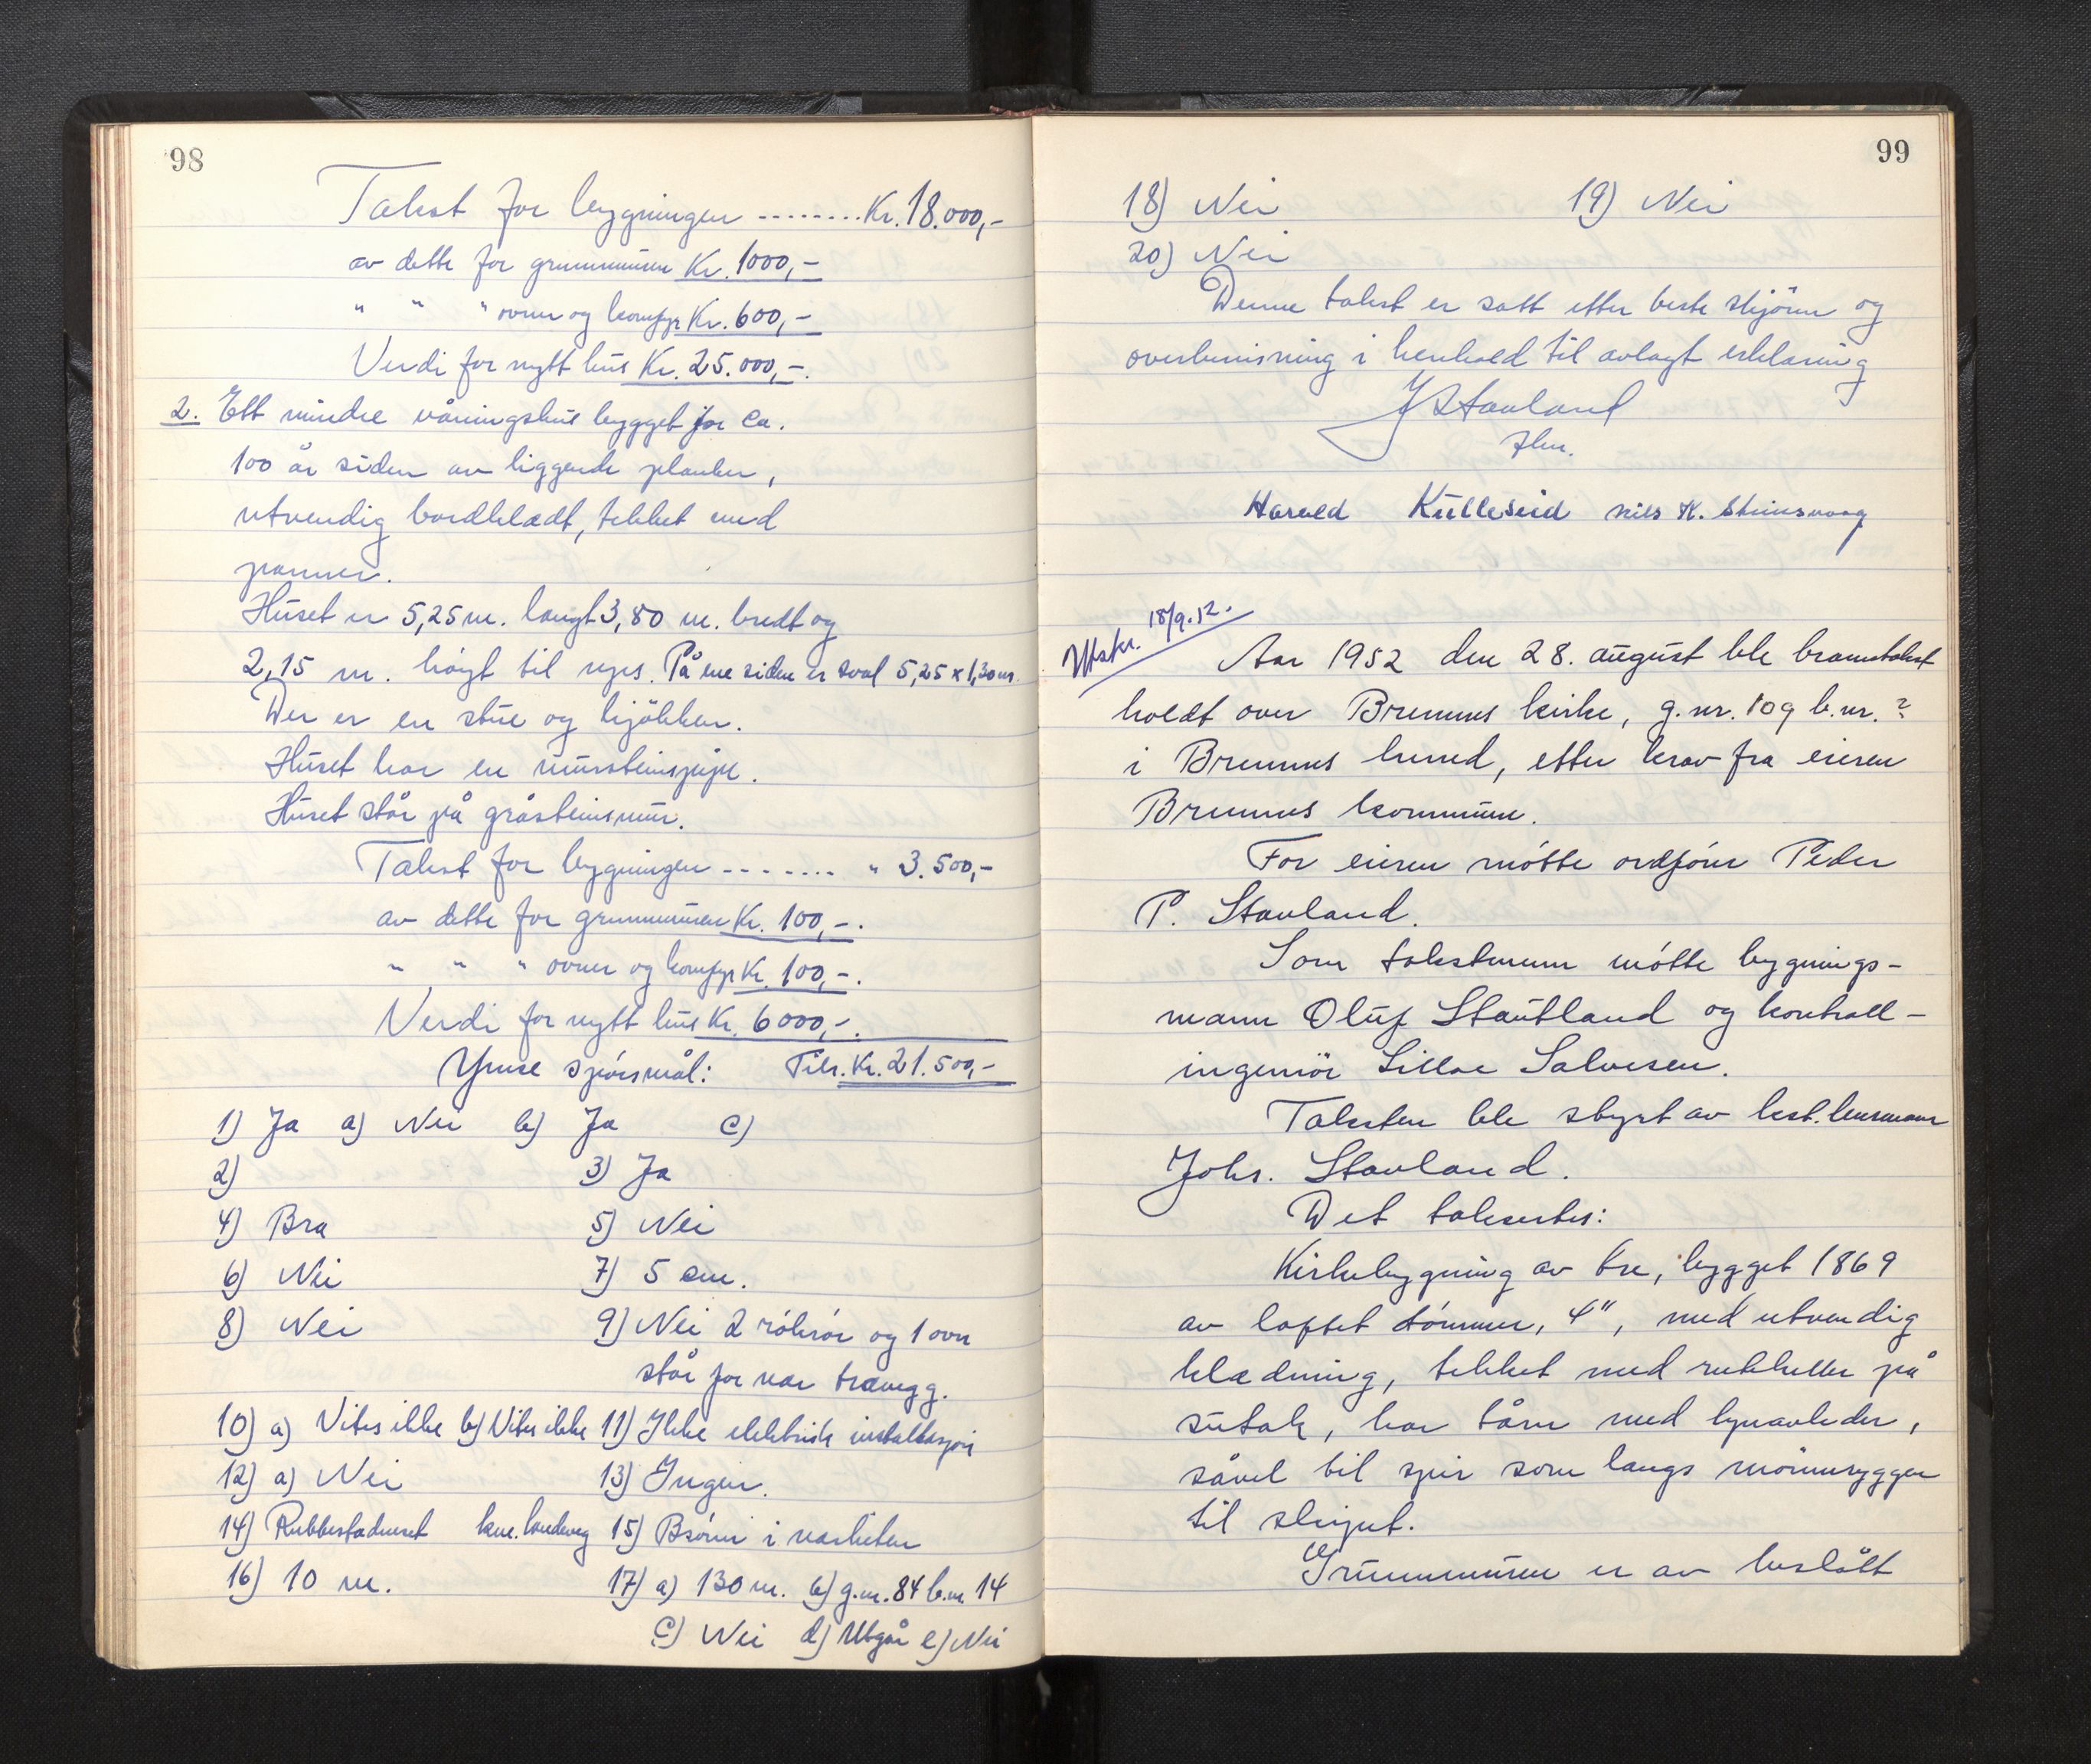 98
Takst for bygningen ........ Kr. 18.000,-
av dette for grunnmuren Kr. 1000,-
" " " ovner og komfyr Kr. 600,-
Verdi for nytt hus Kr. 25.000,-.
2. Ett mindre våningshus bygget for ca.
100 år siden av liggende planker,
utvendig bordklædt, tekket med
panner.
Huset er 5,25 m. langt 3,80 m. bredt og
2,15 m. høigt til røjs. På ene siden er sval 5,25 x 1,30 m.
Der er en stue og kjøkken.
Huset har en mursteinspipe.
Huset står på gråsteinsmur.
Takst for bygningen ....... " 3.500,-
av dette for grunnmuren Kr. 100,-.
" " " ovner og komfyr Kr. 100,-.
Verdi for nytt hus Kr. 6000,-.
Ymse spørsmål: Tils. Kr. 21.500,-
1) Ja a) Nei b) Ja c)
2) 3) Ja
4) Bra 5) Nei
6) Nei 7) 5 cm.
8) Nei 9) Nei 2 rökrör og 1 ovn
står for nær trævegg.
10) a) Vites ikke b) Vites ikke 11) Ikke elektrisk installasjon
12) a) Nei 13) Ingen.
14) Rubbestadneset kne. landeveg 15) Brönn i nærheten
16) 10 m. 17) a) 130 m. b) g.nr. 84 b.nr. 14
c) Nei d) Utgår e) Nei
99
18) Nei 19) Nei
20) Nei
Denne takst er satt etter beste skjönn og
overbevisning i henhold til avlagt erklæring
J Stavland
Harald Kulleseid Nils K. Steinsvaag
Utskr. 18/9.52.
Aar 1952 den 28. august ble branntakst
holdt over Bremnes kirke, g.nr. 109 b.nr. ?
i Bremnes herred, etter krav fra eieren
Bremnes kommune.
For eieren møtte ordförer Peder
P. Stavland.
Som takstmenn møtte bygnings-
mann Oluf Stautland og kontroll-
ingeniör Lillae Salvesen.
Taksten ble styrt av best. lensmann
Johs. Stavland.
Det taksertes:
Kirkebygning av tre, bygget 1869
av laftet tömmer, 4", med utvendig
klædning, tekket med rutheller på
sutak, har tårn med lynavleder,
såvel til spir som langs mönnryggen
til skipet.
Grunnmuren er av huslått